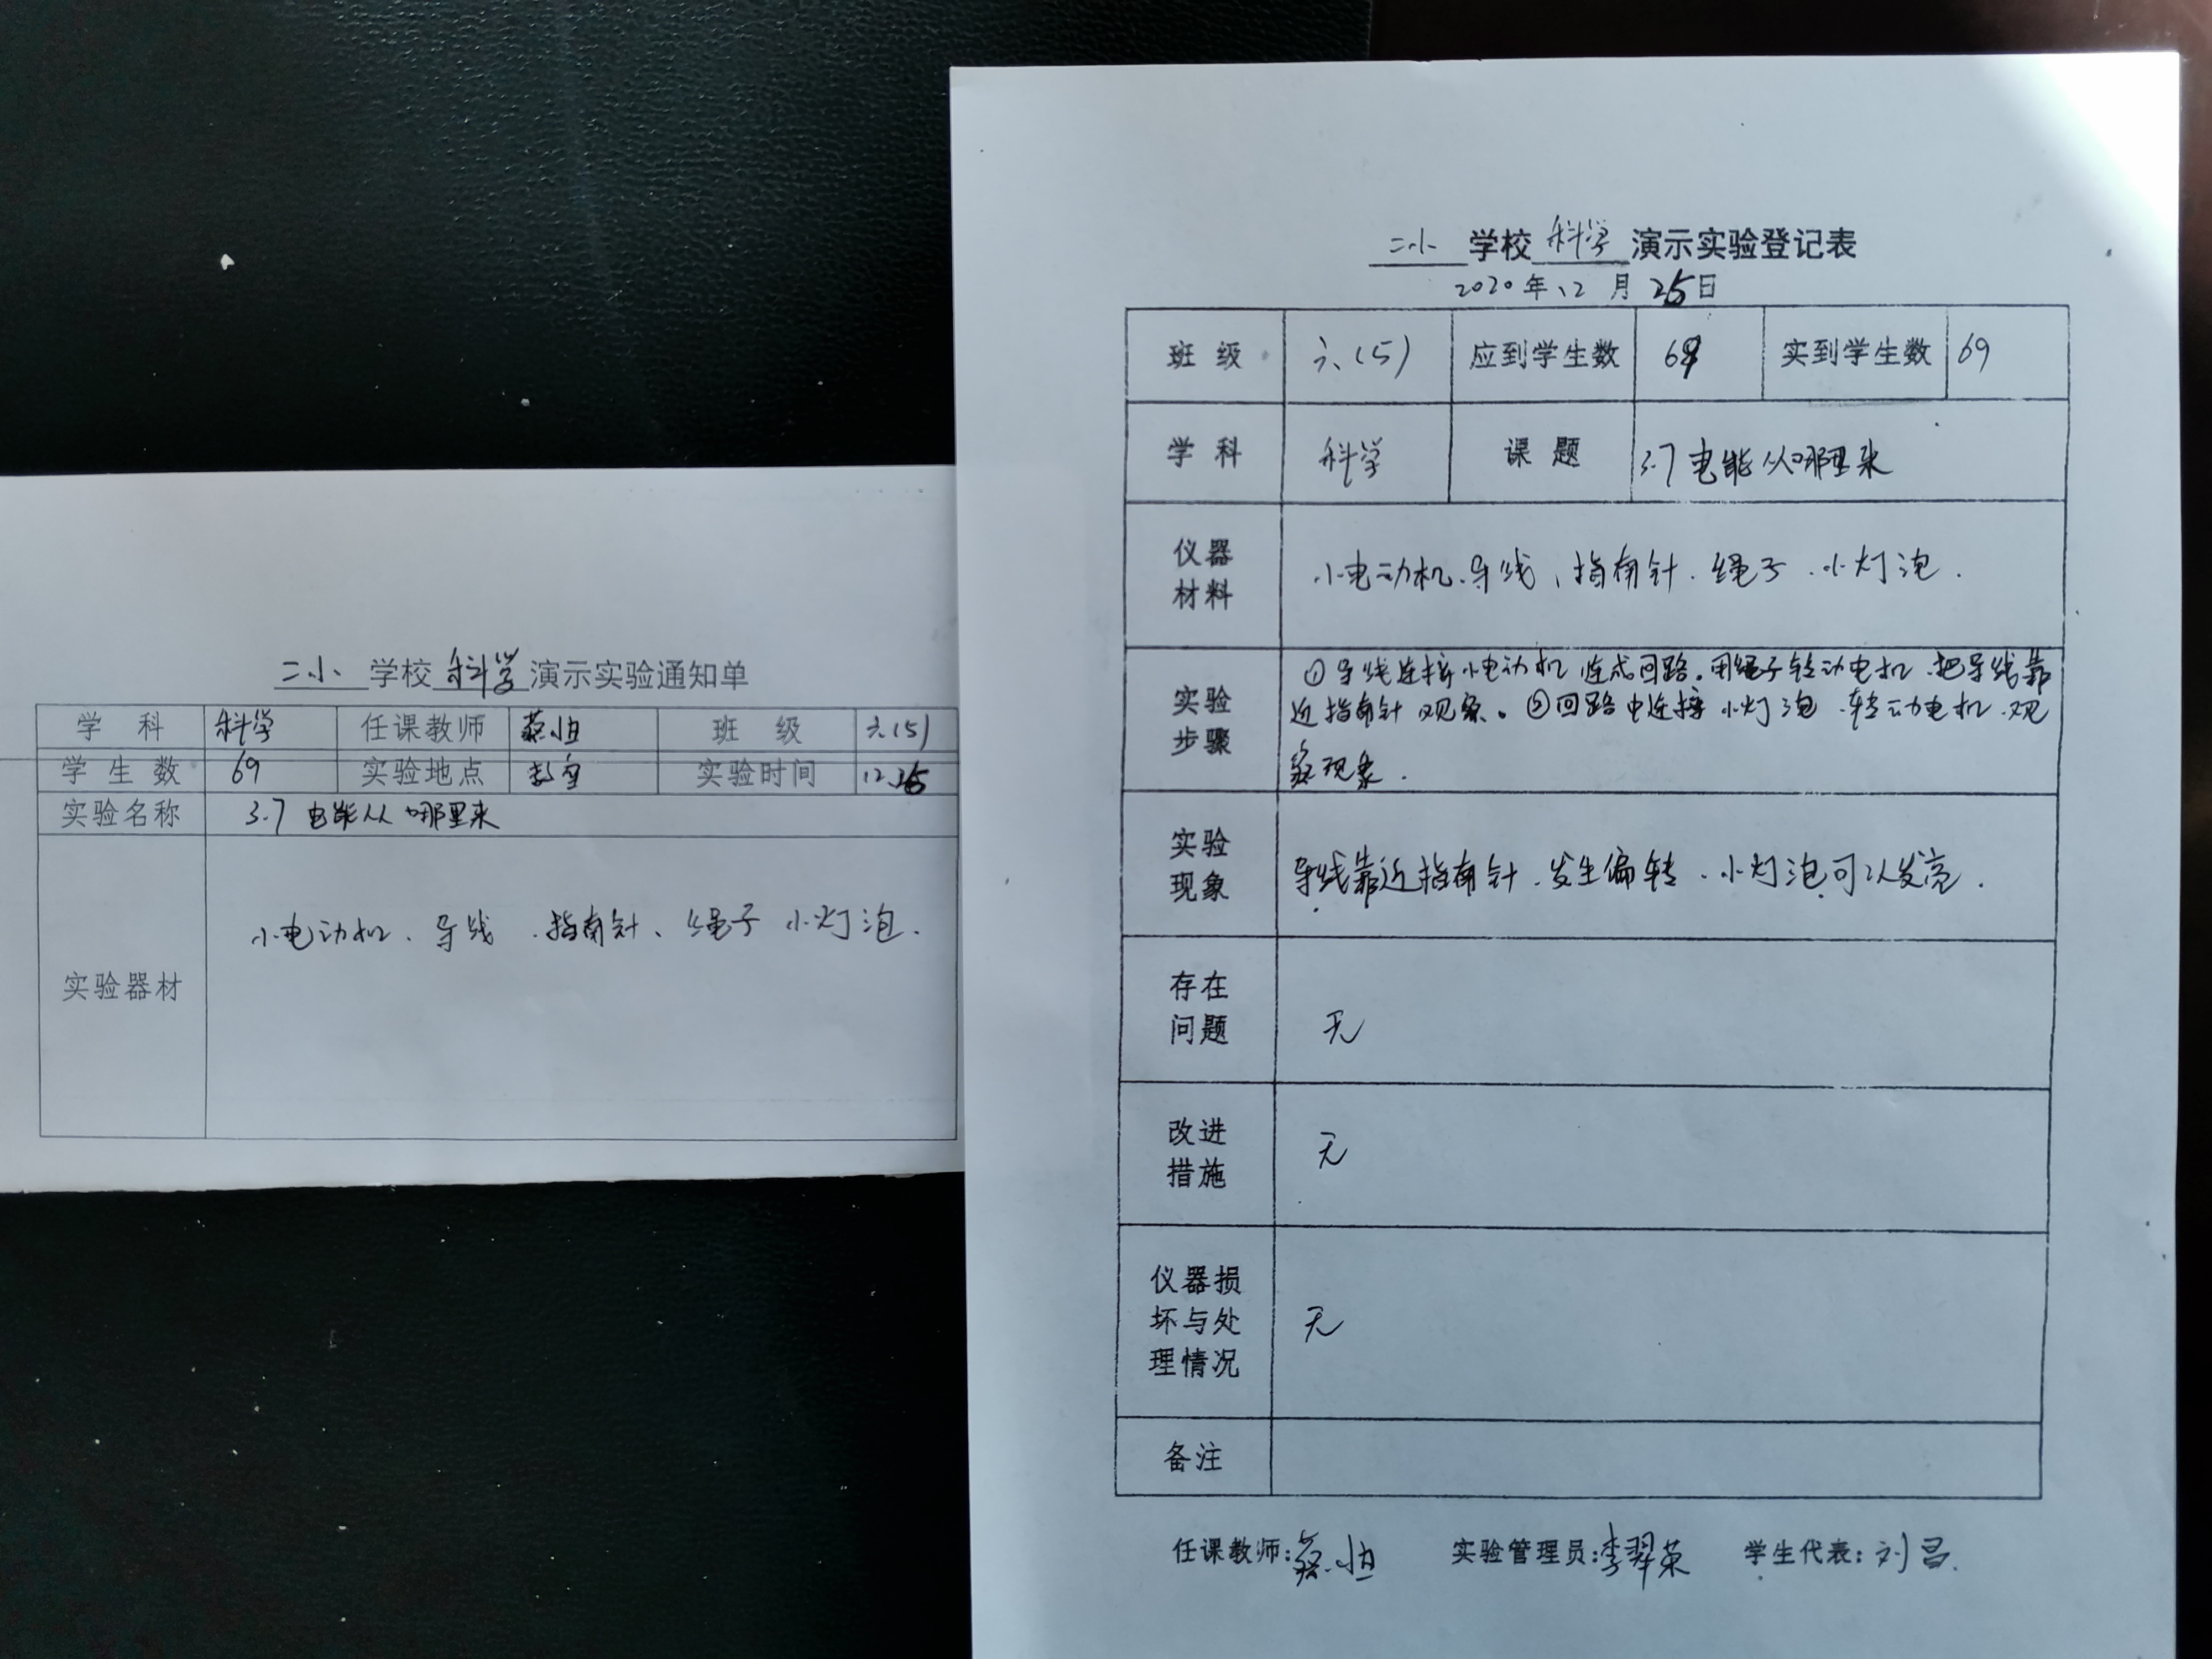 二小 学校 科学 演示实验通知单
学科 科学 任课教师 蔡恒 班级 六(5)
学生数 69 实验地点 教室 实验时间 12.25
实验名称 3.7 电能从哪里来
实验器材 小电动机、导线、指南针、绳子 小灯泡.
二小 学校 科学 演示实验登记表
2020年12月25日
班级 六(5) 应到学生数 69 实到学生数 69
学科 科学 课题 3.7 电能从哪里来
仪器
材料
小电动机、导线、指南针、绳子、小灯泡.
实验
步骤
①导线连接小电动机 连成回路。用绳子转动电机、把导线靠
近指南针 观象。②回路中连接 小灯泡、转动电机、观
察现象.
实验
现象
导线靠近指南针、发生偏转、小灯泡可以发亮.
存在
问题
无
改进
措施
无
仪器损
坏与处
理情况
无
备注
任课教师:蔡恒 实验管理员:李翠荣 学生代表:刘昌.